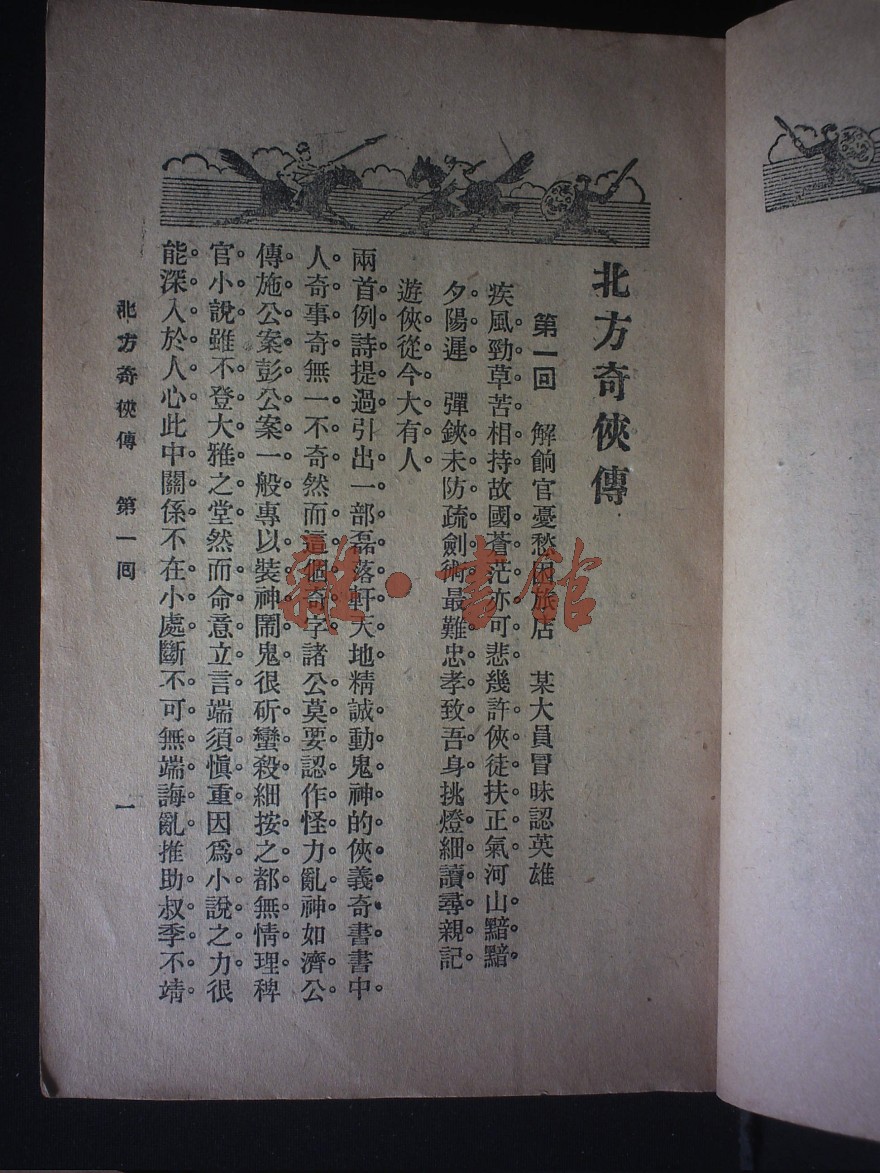 北方奇俠傳
第一回　解餉官憂愁困旅店　某大員冒昧認英雄
疾風勁草苦相持故國蒼茫亦可悲幾許俠徒扶正氣河山黯黯
夕陽遲　彈鋏未防疏劍術最難忠孝致吾身挑燈細讀尋親記
遊俠從今大有人
兩首例詩提過引出一部磊落軒天地精誠動鬼神的俠義奇書書中
人奇事奇無一不奇然而這個奇字諸公莫要認作怪力亂神如濟公
傳施公案彭公案一般專以裝神鬧鬼很斫蠻殺細按之都無情理稗
官小說雖不登大雅之堂然而命意立言端須愼重因爲小說之力很
能深入於人心此中關係不在小處斷不可無端誨亂推助叔季不靖
北方奇俠傳　第一回
一
雜·書館